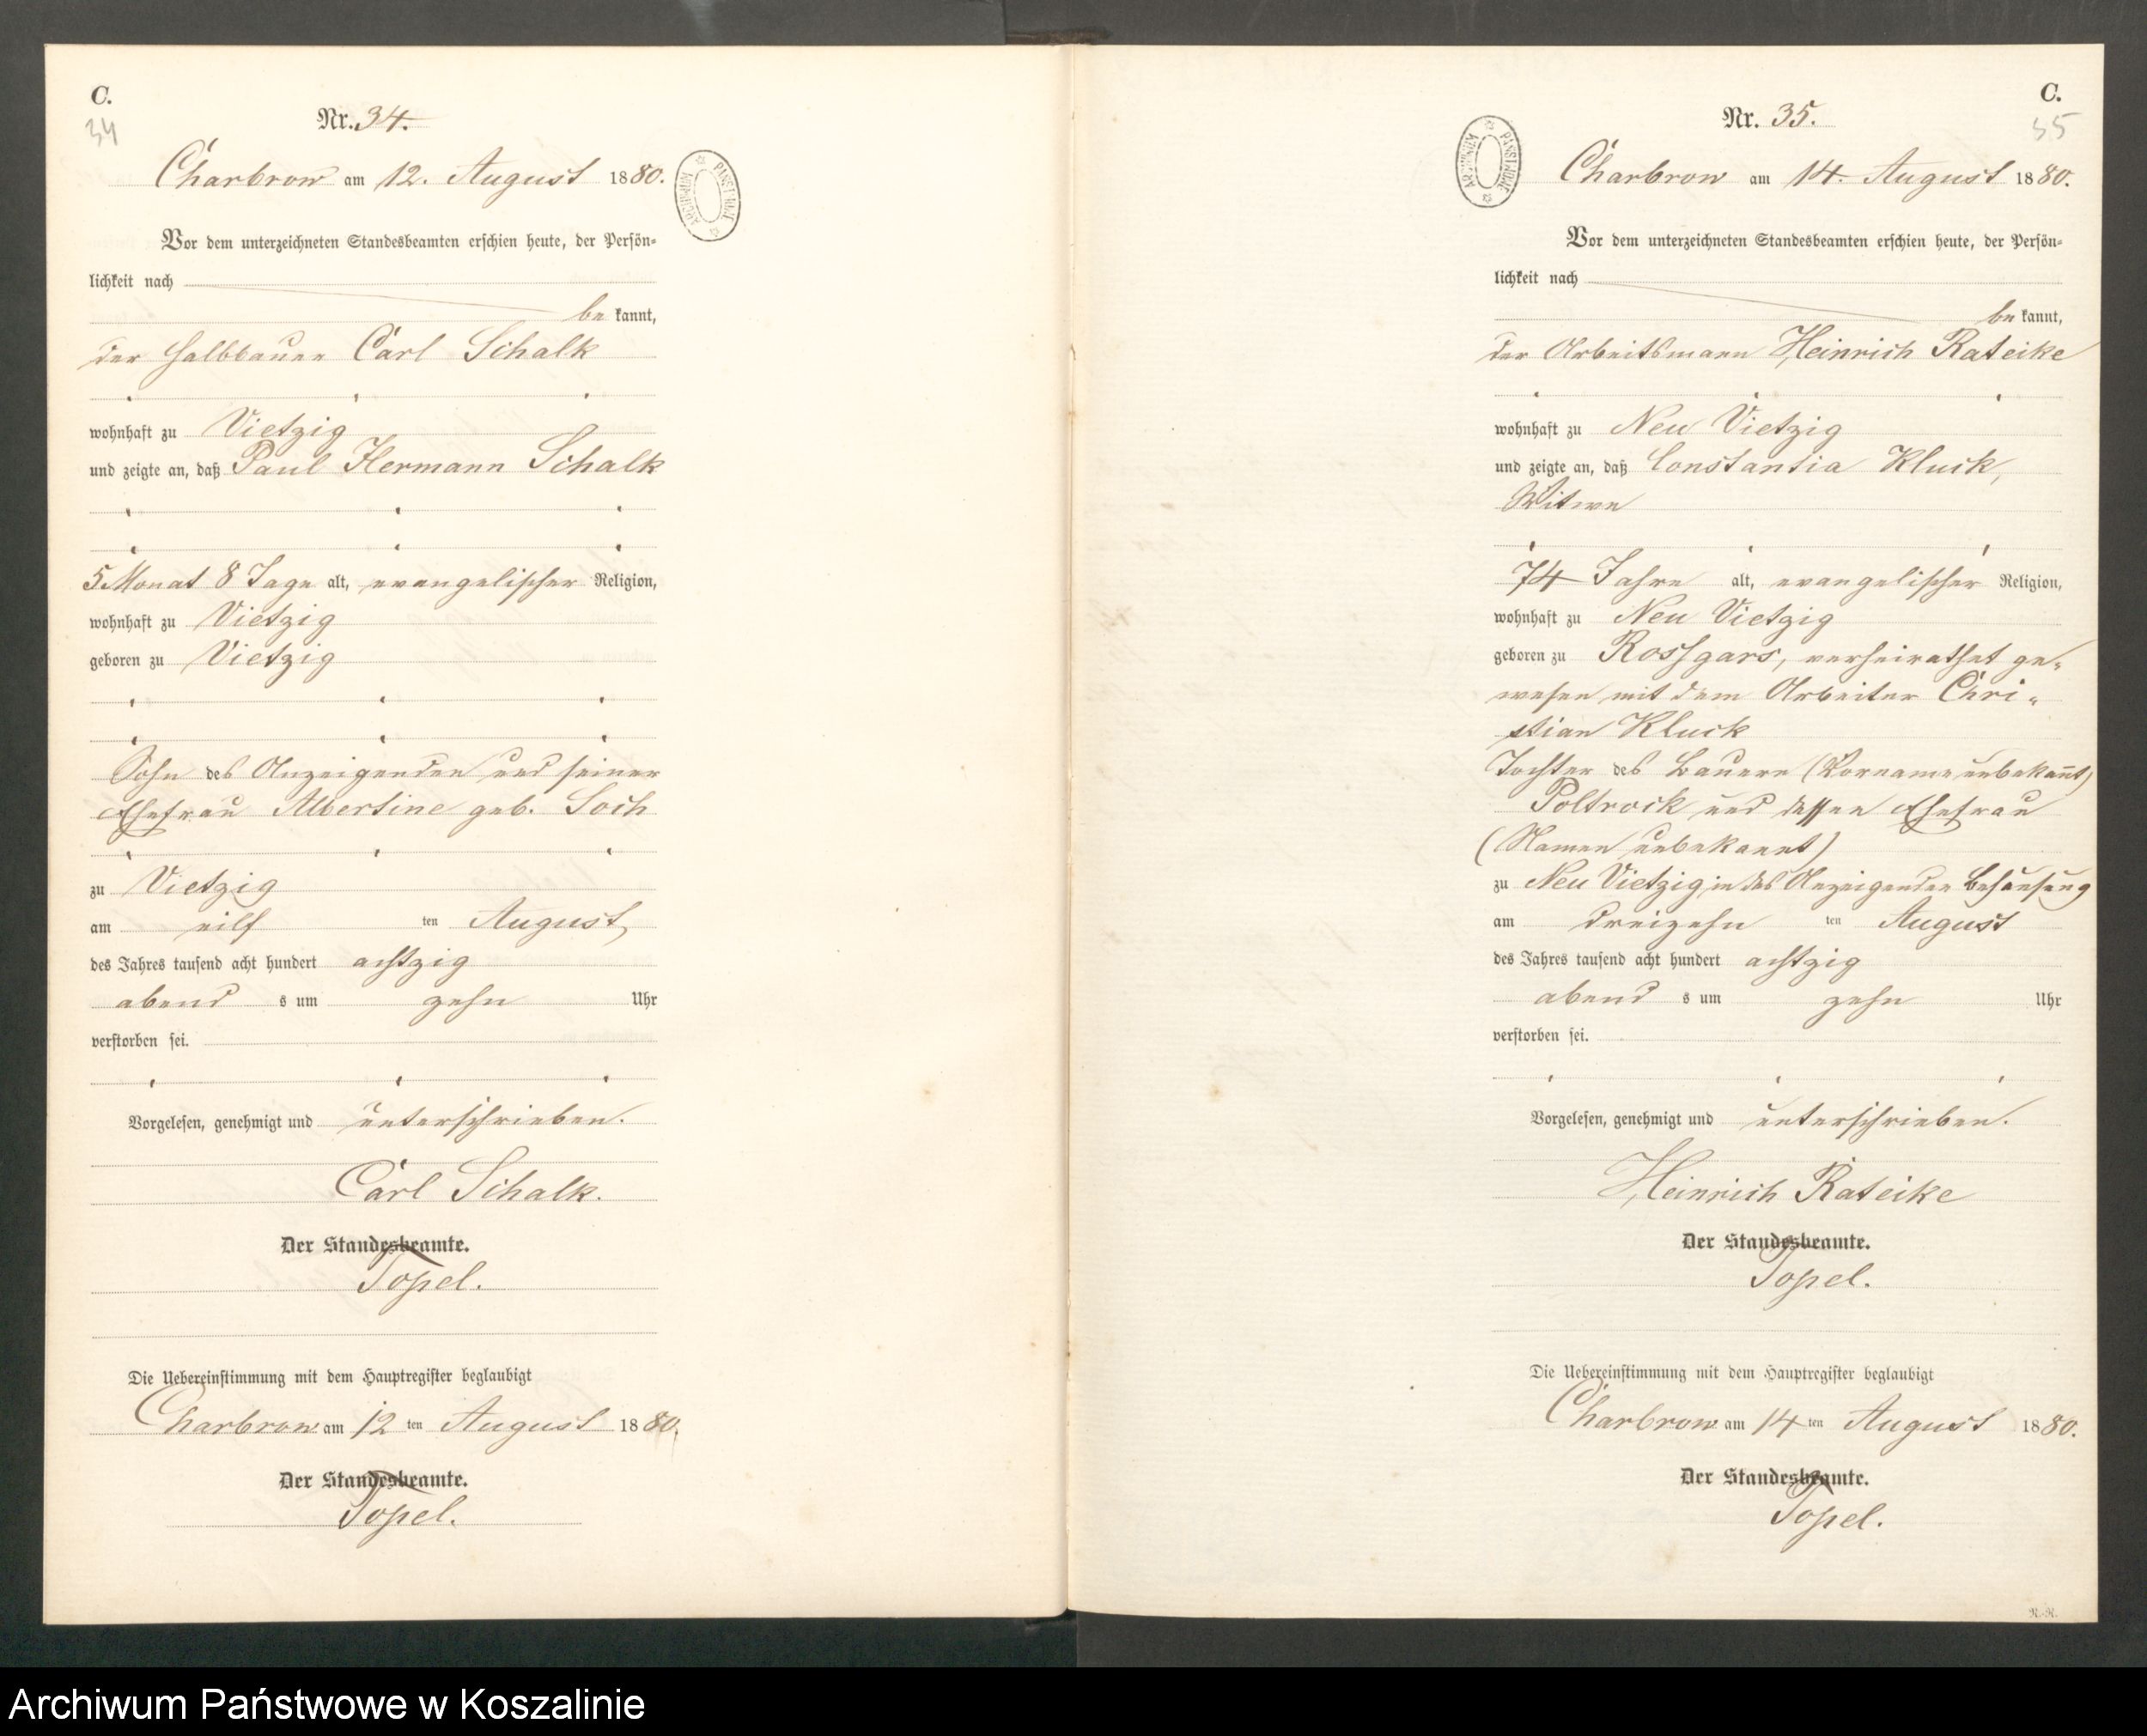 C.
34
Nr. 34.
Charbrow am 12. August 1880.
ARCHIWUM PAŃSTWOWE
Vor dem unterzeichneten Standesbeamten erschien heute, der Persön-
lichkeit nach
be kannt,
der Halbbauer Carl Schalk
wohnhaft zu Vietzig
und zeigte an, daß Paul Hermann Schalk
5 Monat 8 Tage alt, evangelischer Religion,
wohnhaft zu Vietzig
geboren zu Vietzig
Sohn des Anzeigenden und seiner
Ehefrau Albertine geb. Soch
zu Vietzig
am eilf ten August
des Jahres tausend acht hundert achtzig
abend s um zehn Uhr
verstorben sei.
Vorgelesen, genehmigt und unterschrieben.
Carl Schalk.
Der Standesbeamte.
Topel.
Die Uebereinstimmung mit dem Hauptregister beglaubigt
Charbrow am 12 ten August 1880.
Der Standesbeamte.
Topel.
C.
35
Nr. 35.
ARCHIWUM PAŃSTWOWE
Charbrow am 14. August 1880.
Vor dem unterzeichneten Standesbeamten erschien heute, der Persön-
lichkeit nach
be kannt,
der Arbeitsmann Heinrich Rateike
wohnhaft zu Neu Vietzig
und zeigte an, daß Constantia Kluck,
Witwe
74 Jahre alt, evangelischer Religion,
wohnhaft zu Neu Vietzig
geboren zu Rossgars, verheirathet ge-
wesen mit dem Arbeiter Chri-
stian Kluck
Tochter des Bauern (Vorname unbekannt)
Poltrock und dessen Ehefrau
(Namen unbekannt)
zu Neu Vietzig in des Anzeigenden Behausung
am dreizehn ten August
des Jahres tausend acht hundert achtzig
abend s um zehn Uhr
verstorben sei.
Vorgelesen, genehmigt und unterschrieben.
Heinrich Rateike
Der Standesbeamte.
Topel.
Die Uebereinstimmung mit dem Hauptregister beglaubigt
Charbrow am 14 ten August 1880.
Der Standesbeamte.
Topel.
R.-R.
Archiwum Państwowe w Koszalinie